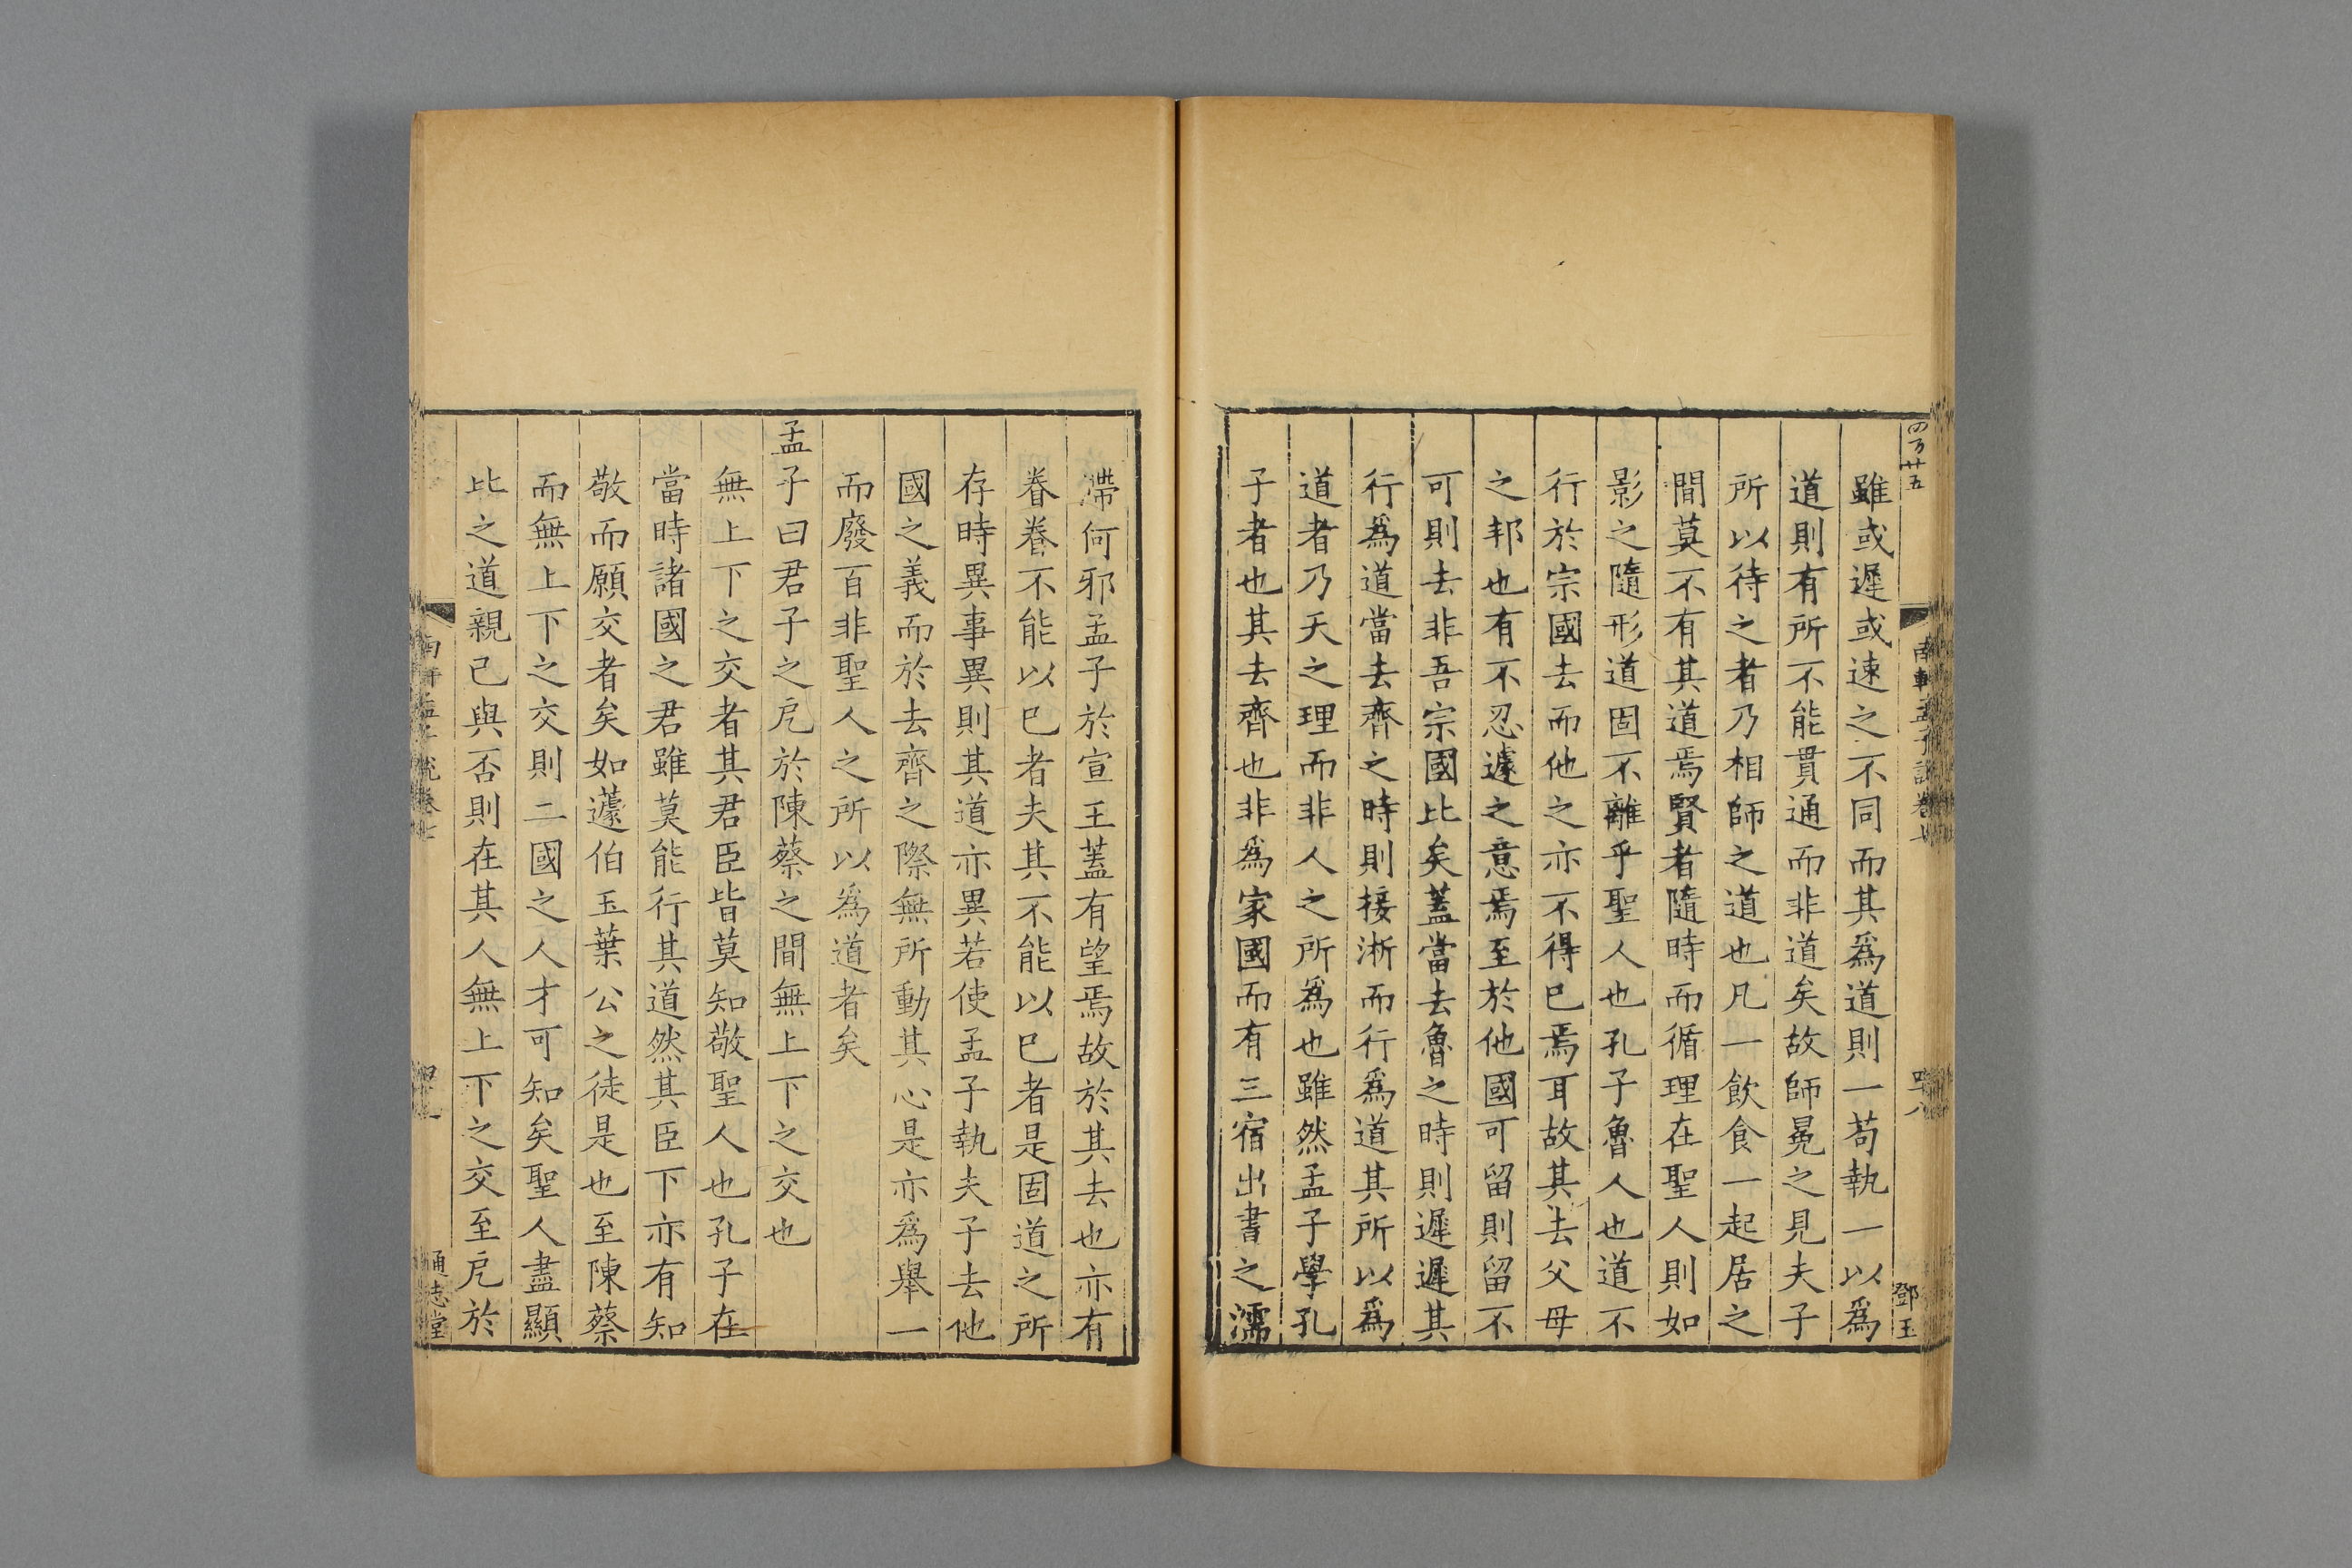 四百廿五
南軒孟子說卷七
鄧玉
雖或遲或速之不同而其爲道則一苟執一以爲
道則有所不能貫通而非道矣故師冕之見夫子
所以待之者乃相師之道也凡一飲食一起居之
間莫不有其道焉賢者隨時而循理在聖人則如
影之隨形道固不離乎聖人也孔子魯人也道不
行於宗國去而他之亦不得已焉耳故其去父母
之邦也有不忍遽之意焉至於他國可留則留不
可則去非吾宗國比矣蓋當去魯之時則遲遲其
行爲道當去齊之時則接淅而行爲道其所以爲
道者乃天之理而非人之所爲也雖然孟子學孔
子者也其去齊也非爲家國而有三宿出書之濡
滯何邪孟子於宣王蓋有望焉故於其去也亦有
眷眷不能以已者夫其不能以已者是固道之所
存時異事異則其道亦異若使孟子執夫子去他
國之義而於去齊之際無所動其心是亦爲舉一
而廢百非聖人之所以爲道者矣
孟子曰君子之戹於陳蔡之間無上下之交也
無上下之交者其君臣皆莫知敬聖人也孔子在
當時諸國之君雖莫能行其道然其臣下亦有知
敬而願交者矣如蘧伯玉葉公之徒是也至陳蔡
而無上下之交則二國之人才可知矣聖人盡顯
比之道親己與否則在其人無上下之交至戹於
南軒孟子說卷七
通志堂